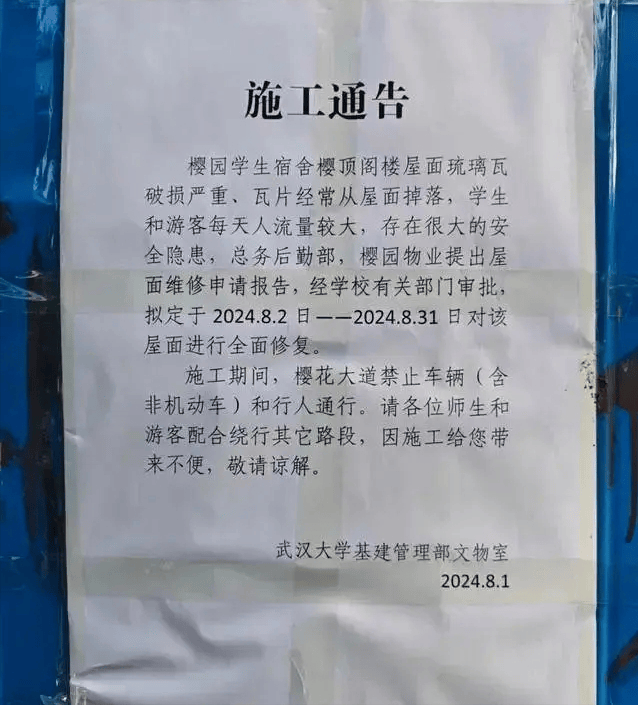 施工通告
樱园学生宿舍樱顶阁楼屋面琉璃瓦
破损严重、瓦片经常从屋面掉落，学生
和游客每天人流量较大，存在很大的安
全隐患，总务后勤部，樱园物业提出屋
面维修申请报告，经学校有关部门审批，
拟定于 2024.8.2 日——2024.8.31 日对该
屋面进行全面修复。
施工期间，樱花大道禁止车辆（含
非机动车）和行人通行。请各位师生和
游客配合绕行其它路段，因施工给您带
来不便，敬请谅解。
武汉大学基建管理部文物室
2024.8.1